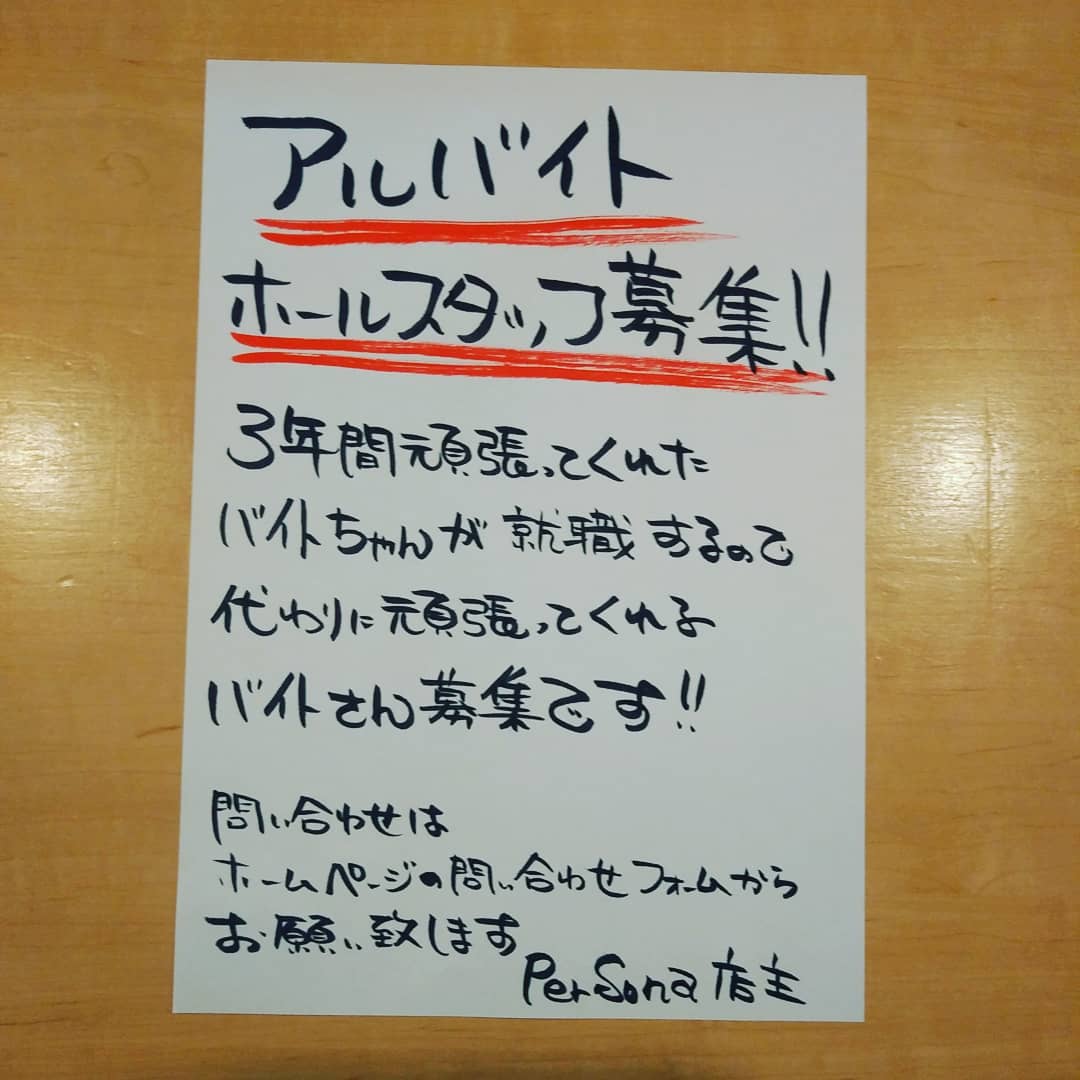 アルバイト
ホールスタッフ募集!!
3年間頑張ってくれた
バイトちゃんが就職するので
代わりに頑張ってくれる
バイトさん募集です!!
問い合わせは
ホームページの問い合わせフォームから
お願い致します
PerSona 店主